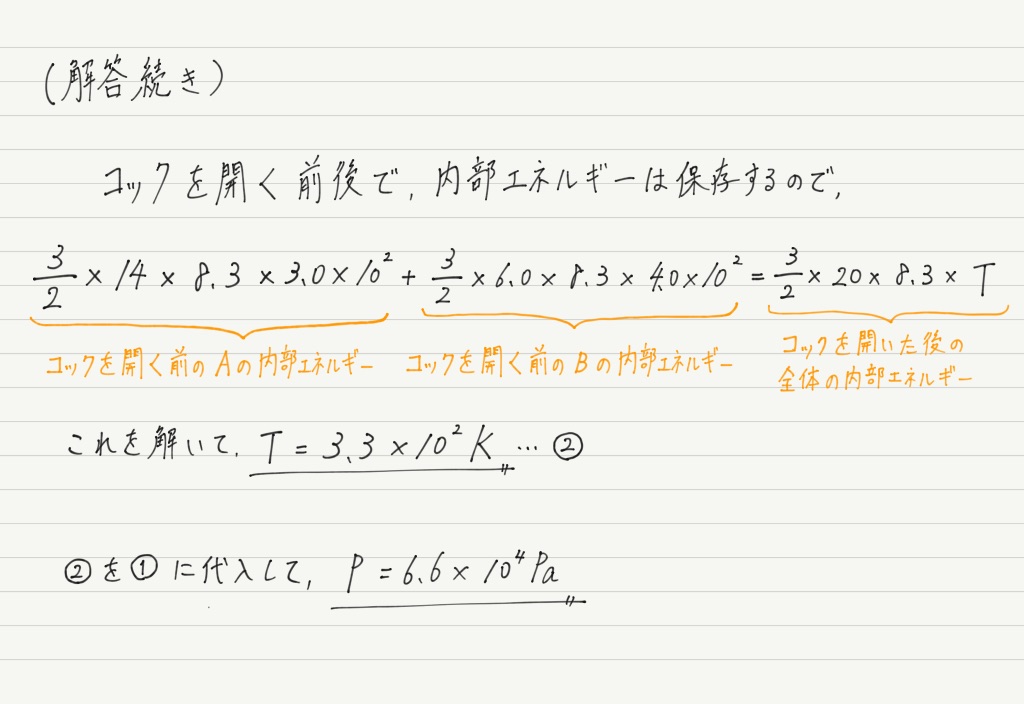 (解答続き)
コックを開く前後で,内部エネルギーは保存するので,
3/2 × 14 × 8.3 × 3.0 × 10² + 3/2 × 6.0 × 8.3 × 4.0 × 10² = 3/2 × 20 × 8.3 × T
コックを開く前のAの内部エネルギー コックを開く前のBの内部エネルギー コックを開いた後の
全体の内部エネルギー
これを解いて, T = 3.3 × 10² K … ②
②を①に代入して, P = 6.6 × 10⁴ Pa